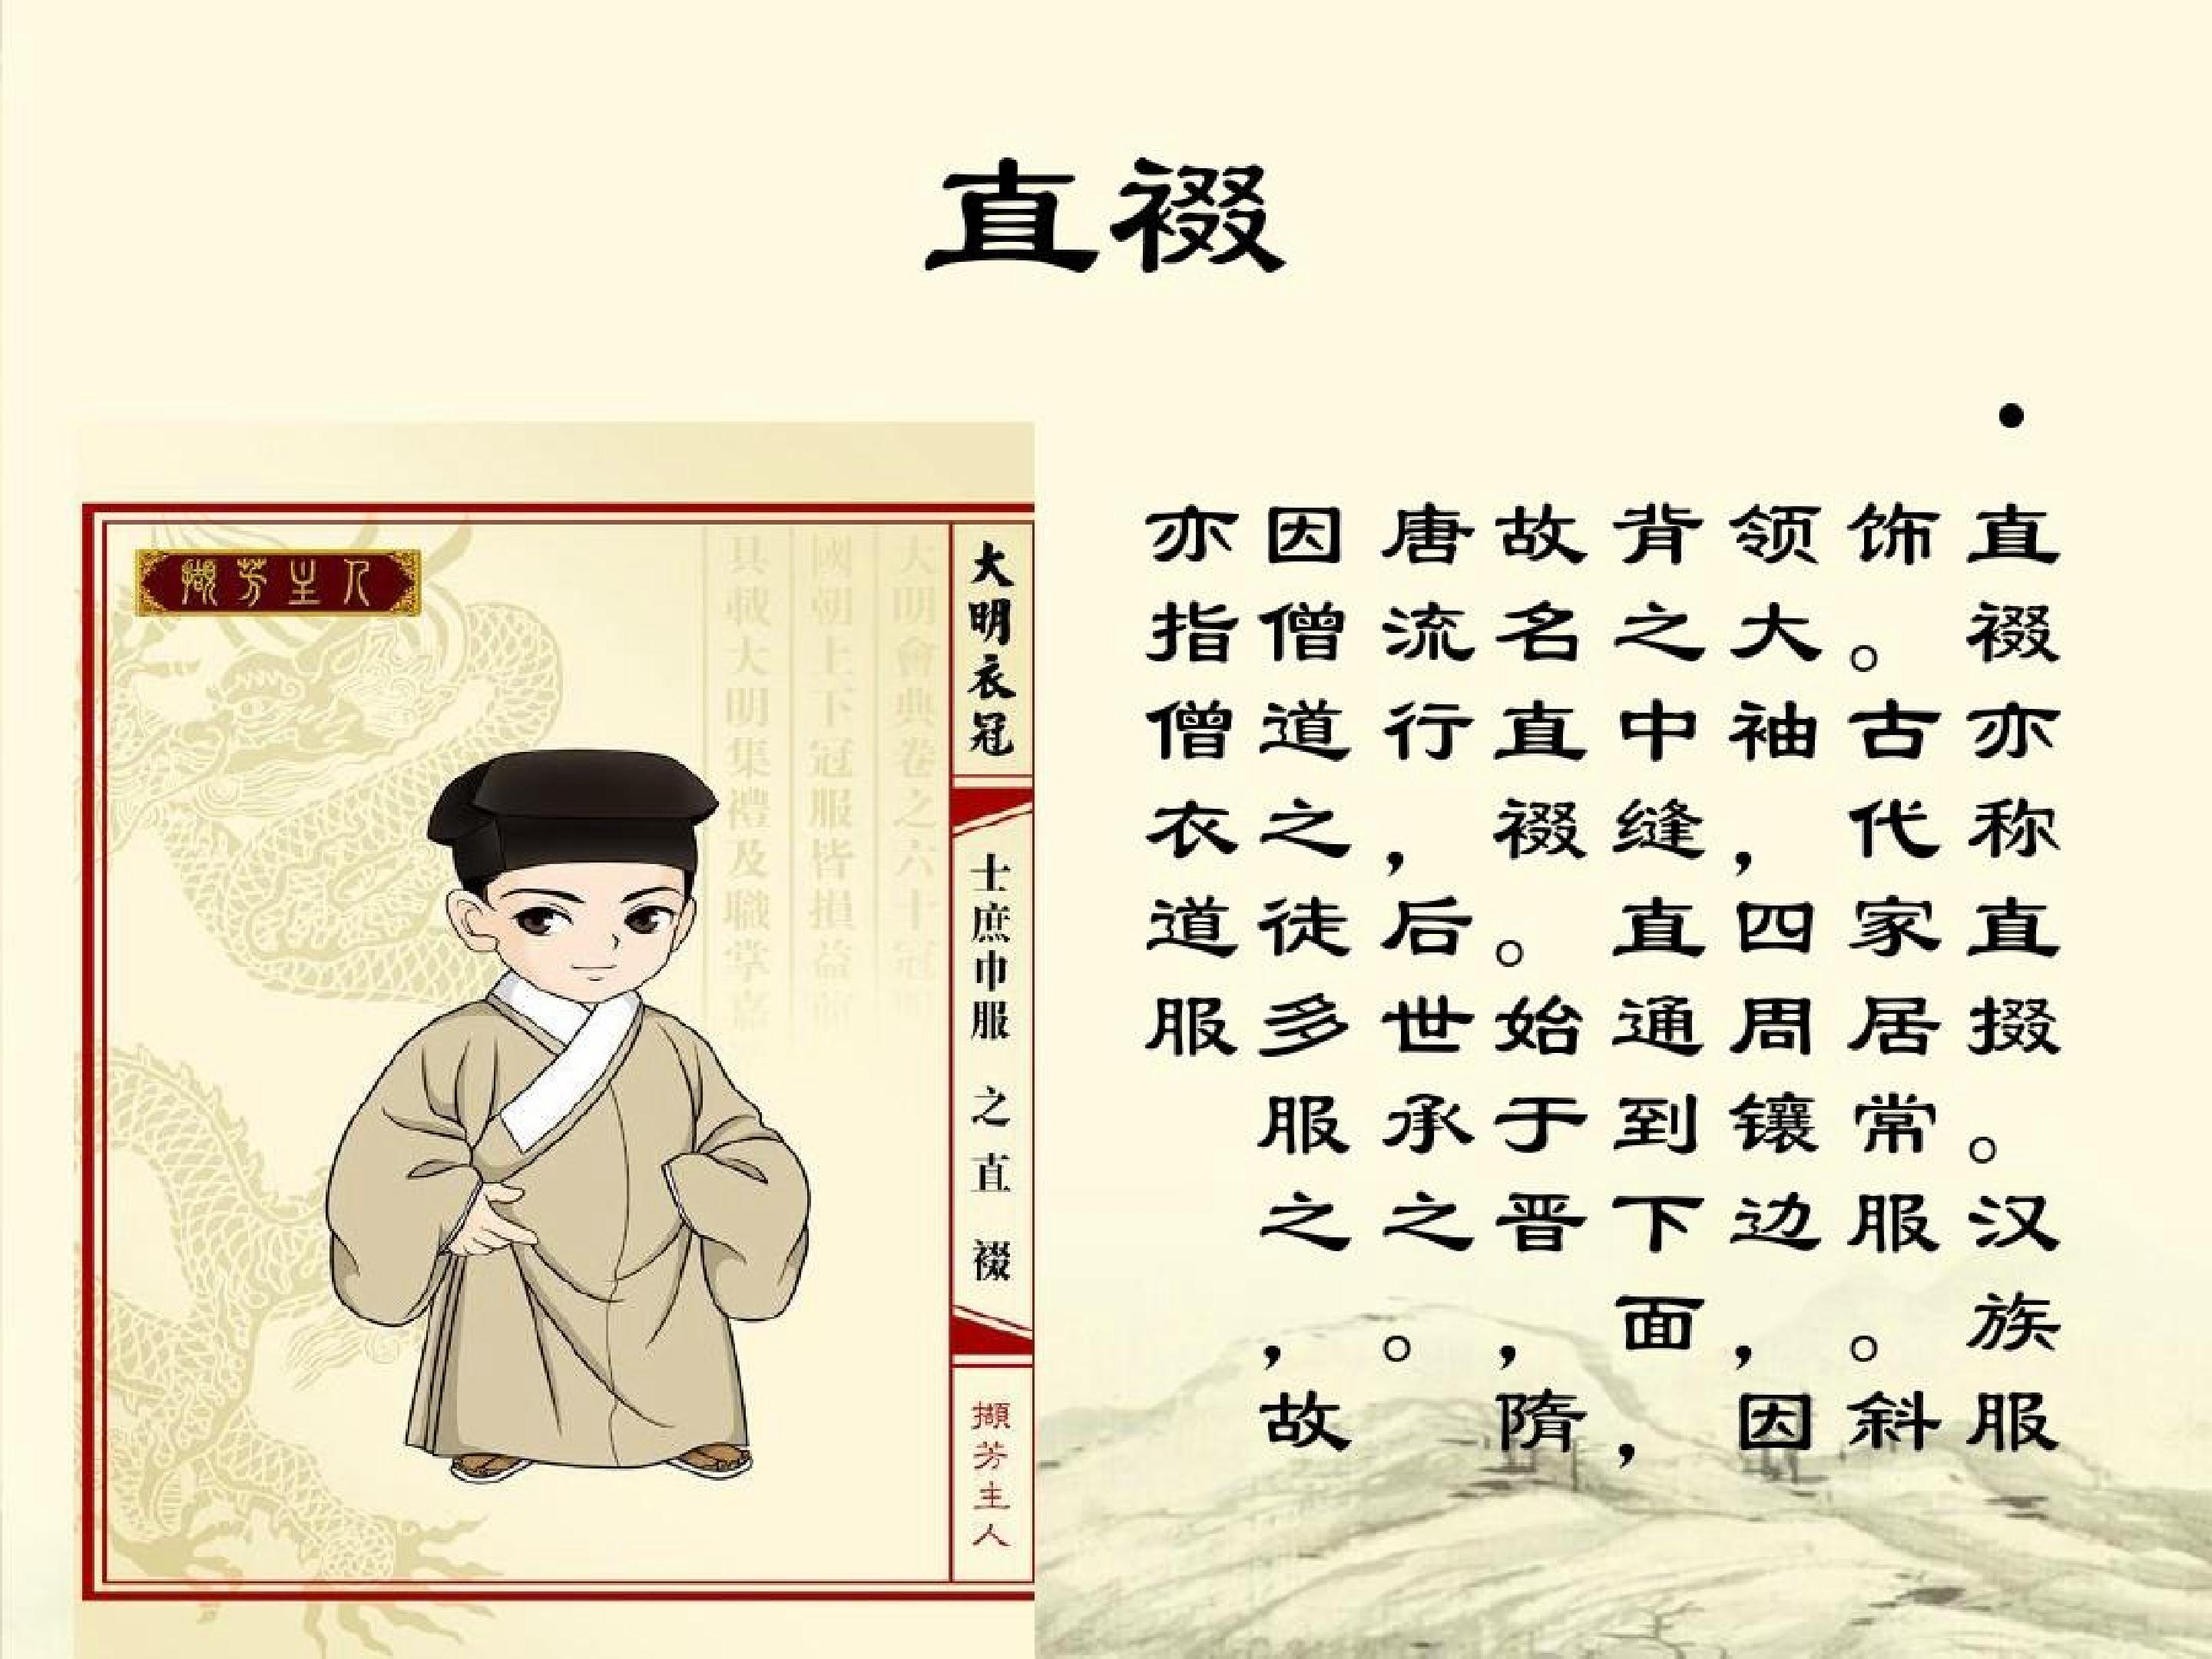 直裰
• 直裰亦称直掇。汉族服
饰。古代家居常服。斜
领大袖,四周镶边,因
背之中缝直通到下面,
故名直裰。始于晋,隋
唐流行,后世承之。
因僧道之徒多服之,故
亦指僧衣道服
擷芳主人
大明衣冠
士庶巾服 之直 裰
擷芳主人
大明會典卷之六十冠
國朝上下冠服皆損益前
具載大明集禮及職掌嘉